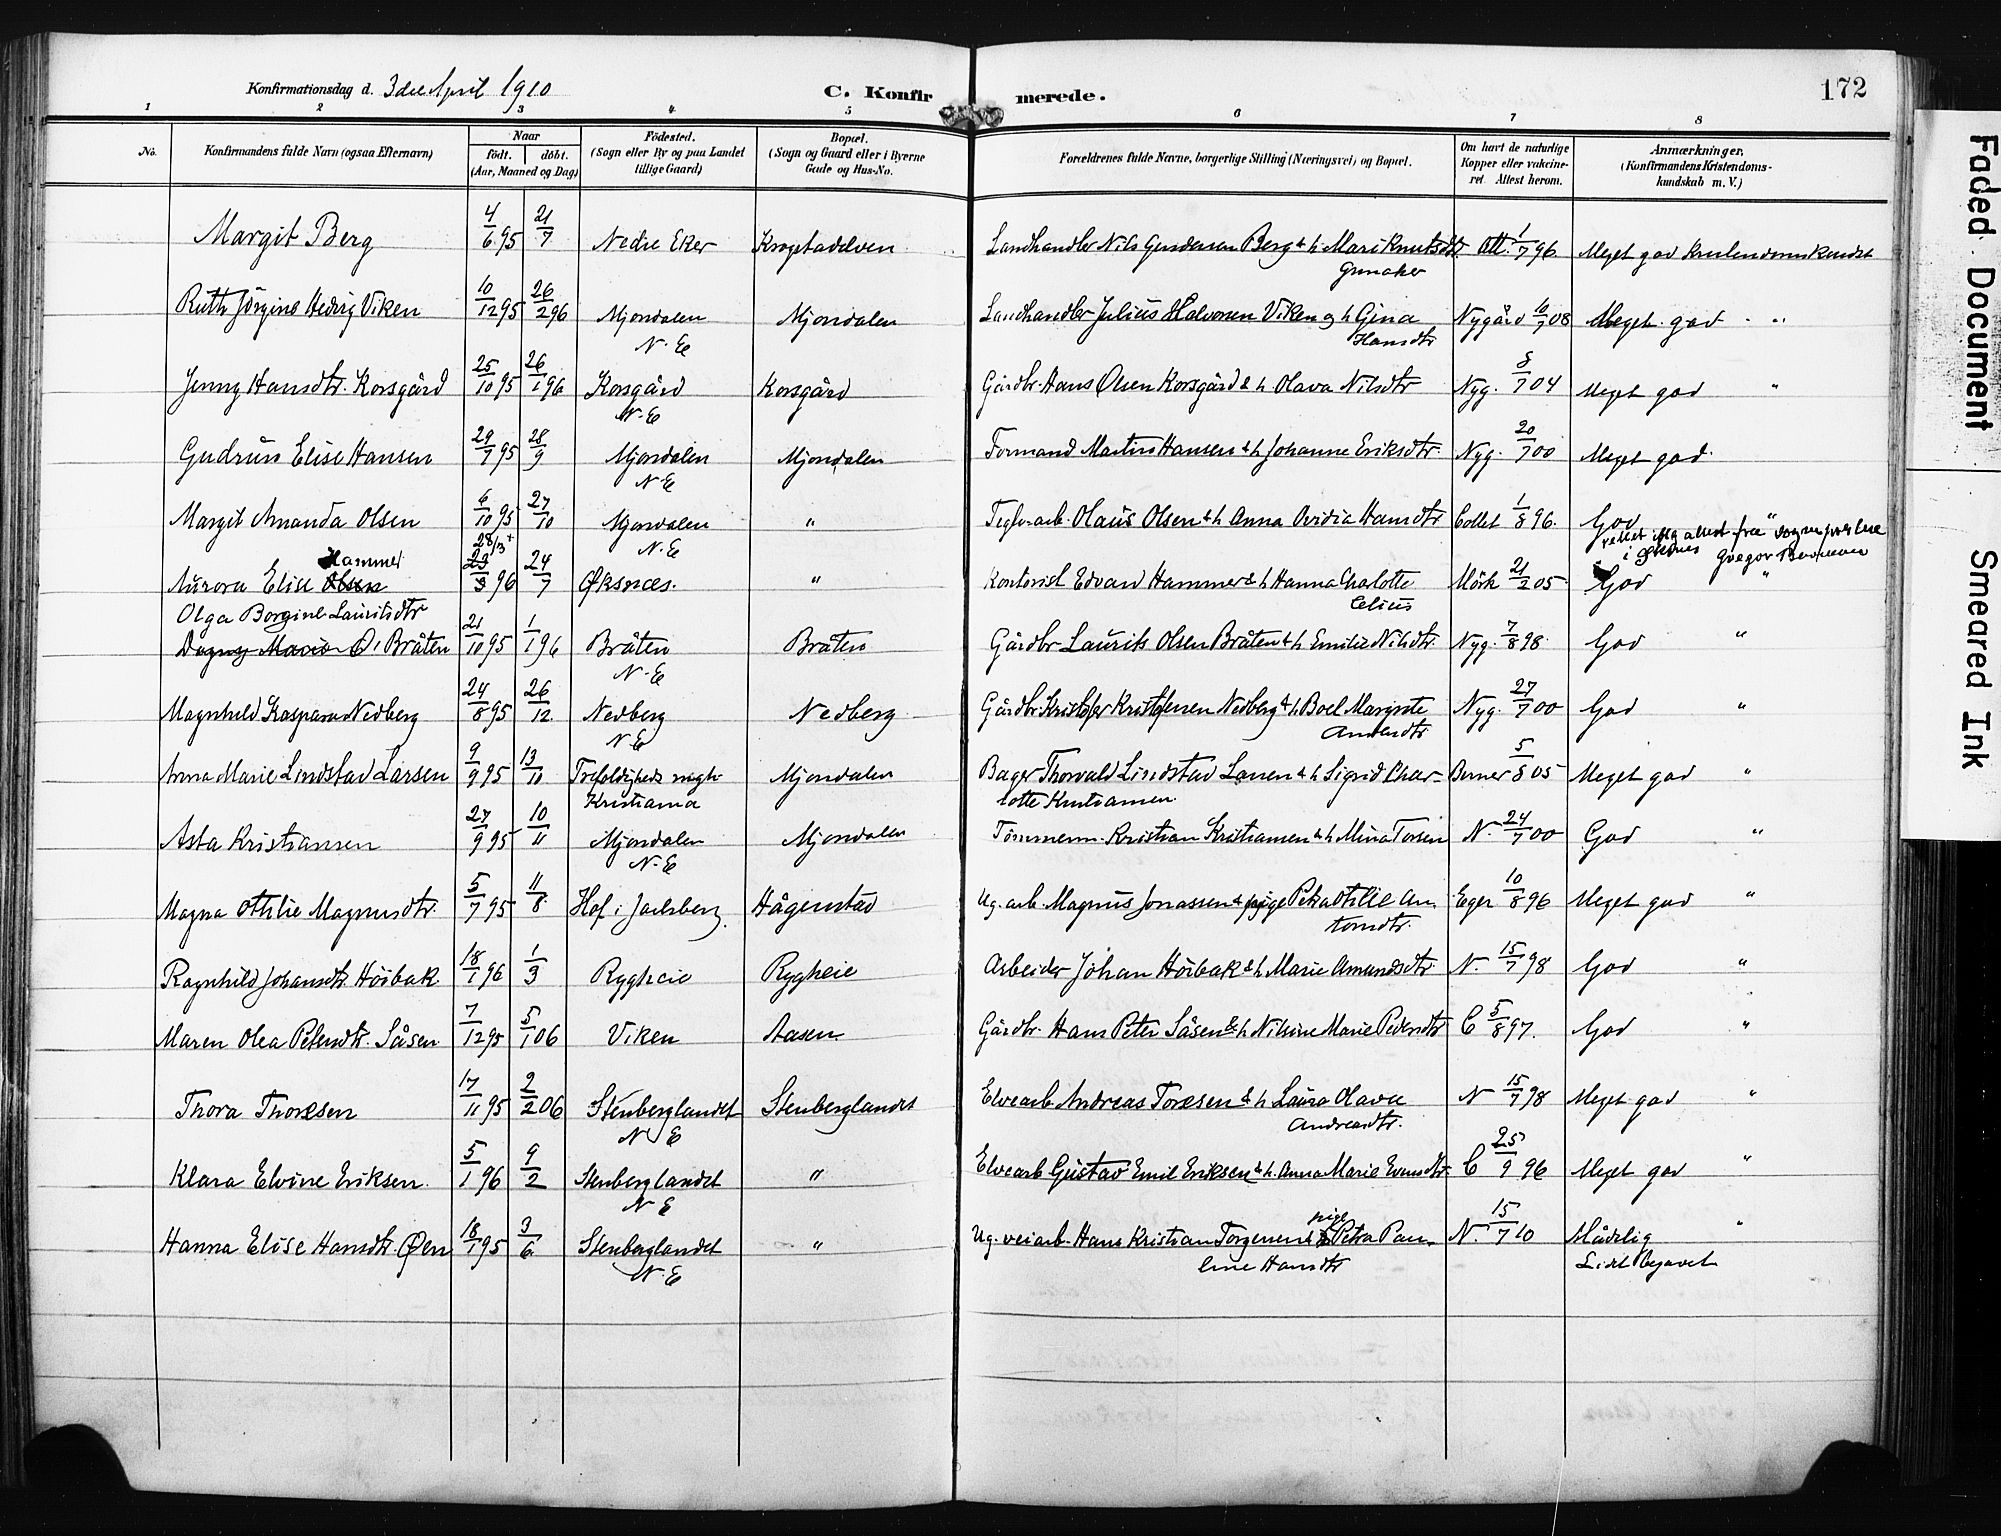 Konfirmationsdag d. 3die April 1910 C. Konfirmerede. 172
1 2 3 4 5 6 7 8
No. Konfirmandens fulde Navn (ogsaa Efternavn) Naar født. døbt. (Aar, Maaned og Dag) Födested. (Sogn eller By og paa Landet tillige Gaard) Bopæl. (Sogn og Gaard eller i Byerne Gade og Hus-No. Forældrenes fulde Navne, borgerlige Stilling (Næringsvei) og Bopæl. Om havt de naturlige Kopper eller vakcineret. Attest herom. Anmærkninger, (Konfirmandens Kristendomskundskab m. V.)
Margit Berg 4/6 95 21/7 Nedre Eker Krogstadelven Landhandler Nils Berg & h Mari Knutsdtr Ott. 1/7 96 Meget god
Ruth Jörgine Hedvig Viken 10/12 95 26/2 96 Mjøndalen Mjøndalen Landhandler Julius Halvorsen Viken og h Gina Nygård 10/7 08 Meget god "
N. E Hansdtr
Jenny Hansdtr. Korsgård 25/10 95 26/1 96 Korsgård Korsgård Gårdbr. Hans Olsen Korsgård & h Olava Nilsdtr Nyg. 8/7 04 Meget god "
N. E
Gudrun Elise Hansen 29/7 95 28/9 Mjøndalen Mjøndalen Formand Martin Hansen & h Johanne Eriksdtr Nyg. 20/7 00 Meget god.
N E
Margit Amanda Olsen 6/10 95 27/10 Mjøndalen " Teglv.arb. Olaus Olsen & h Anna Ovidia Hansdtr Collet 1/8 96. God "
N. E rettet iflg attest fra sogneprestene
28/3 i Øksnes Gregor
Hammer
Aurora Elise Olsen 23/3 96 24/7 Øksnæs. " Kontorist Edvard Hammer & h Hanna Charlotte Mörk 21/2 05 God "
Celius
Olga Borgine Lauritsdtr
Dagny Marie O. Bråten 21/10 95 1/1 96 Bråten Bråten Gårdbr Laurits Olsen Bråten & h Emilie Nilsdtr. Nyg. 7/8 98. God "
N. E
Magnhild Kaspara Nedberg 24/8 95 26/12. Nedberg Nedberg Gårdbr Kristofer Kristofersen Nedberg & h. Boel Margrete Nyg. 27/7 00 God "
N E
Anna Marie Lindstad Larsen 9/9 95 13/10 Trefoldigheds mgh Mjøndalen Bager Thorvald Lindstad Larsen & h Sigrid Char- Berner 5/8 05 Meget god "
Kristiania lotte Kristiansen.
Asta Kristiansen 27/9 95 10/11 Mjøndalen Mjøndalen Tömmerm. Kristian Kristiansen & h Mina Torsen N. 24/7 00 God "
N. E
Magna Othilie Magnusdtr. 5/7 95 11/8 Hof i Jarlsberg Hågenstad Ug. arb. Magnus Jonassen & pige Petra Otilie An- Eger 10/8 96 Meget god "
tonsdtr.
Ragnhild Johansdtr. Höibak 18/1 96 1/3 Rygheie Rygheie Arbeider Johan Höibak & h Marie Amundsdtr N. 15/7 98 God "
Maren Olea Petersdtr. Såsen 7/12 95 5/1 06 Viken Aasen Gårdbr. Hans Peter Såsen & h Nilsine Marie Pedersdtr C 5/8 97. God "
Thora Thoresen 17/11 95 2/2 06 Stenberglandet Stenberglandet Elvearb Andreas Toresen & h Laura Olava N 15/7 98 Meget god "
N E Andreasdtr.
Klara Elvine Eriksen. 5/1 96 9/2 Stenberglandet " Elvearb Gustav Emil Eriksen & h. Anna Marie Evensdtr C 25/9 96 Meget god "
N E
pige
Hanna Elise Hansdtr. Øen 18/1 95 3/6 Stenberglandet " Ug. veiarb. Hans Kristian Torgersen & h Petra Pau- N. 15/7 10 Mådelig "
N. E line Hansdtr Lidet begavet
Faded Document
Smeared Ink